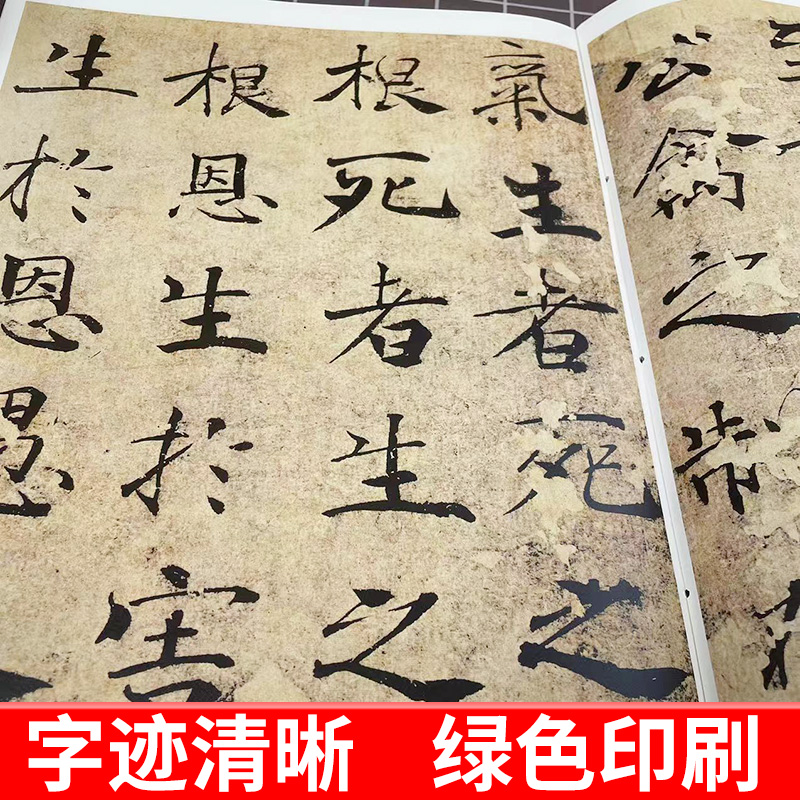 公禽之制在
氣生者死之
根死者生之
根恩生於害
生於恩愚
字迹清晰 绿色印刷